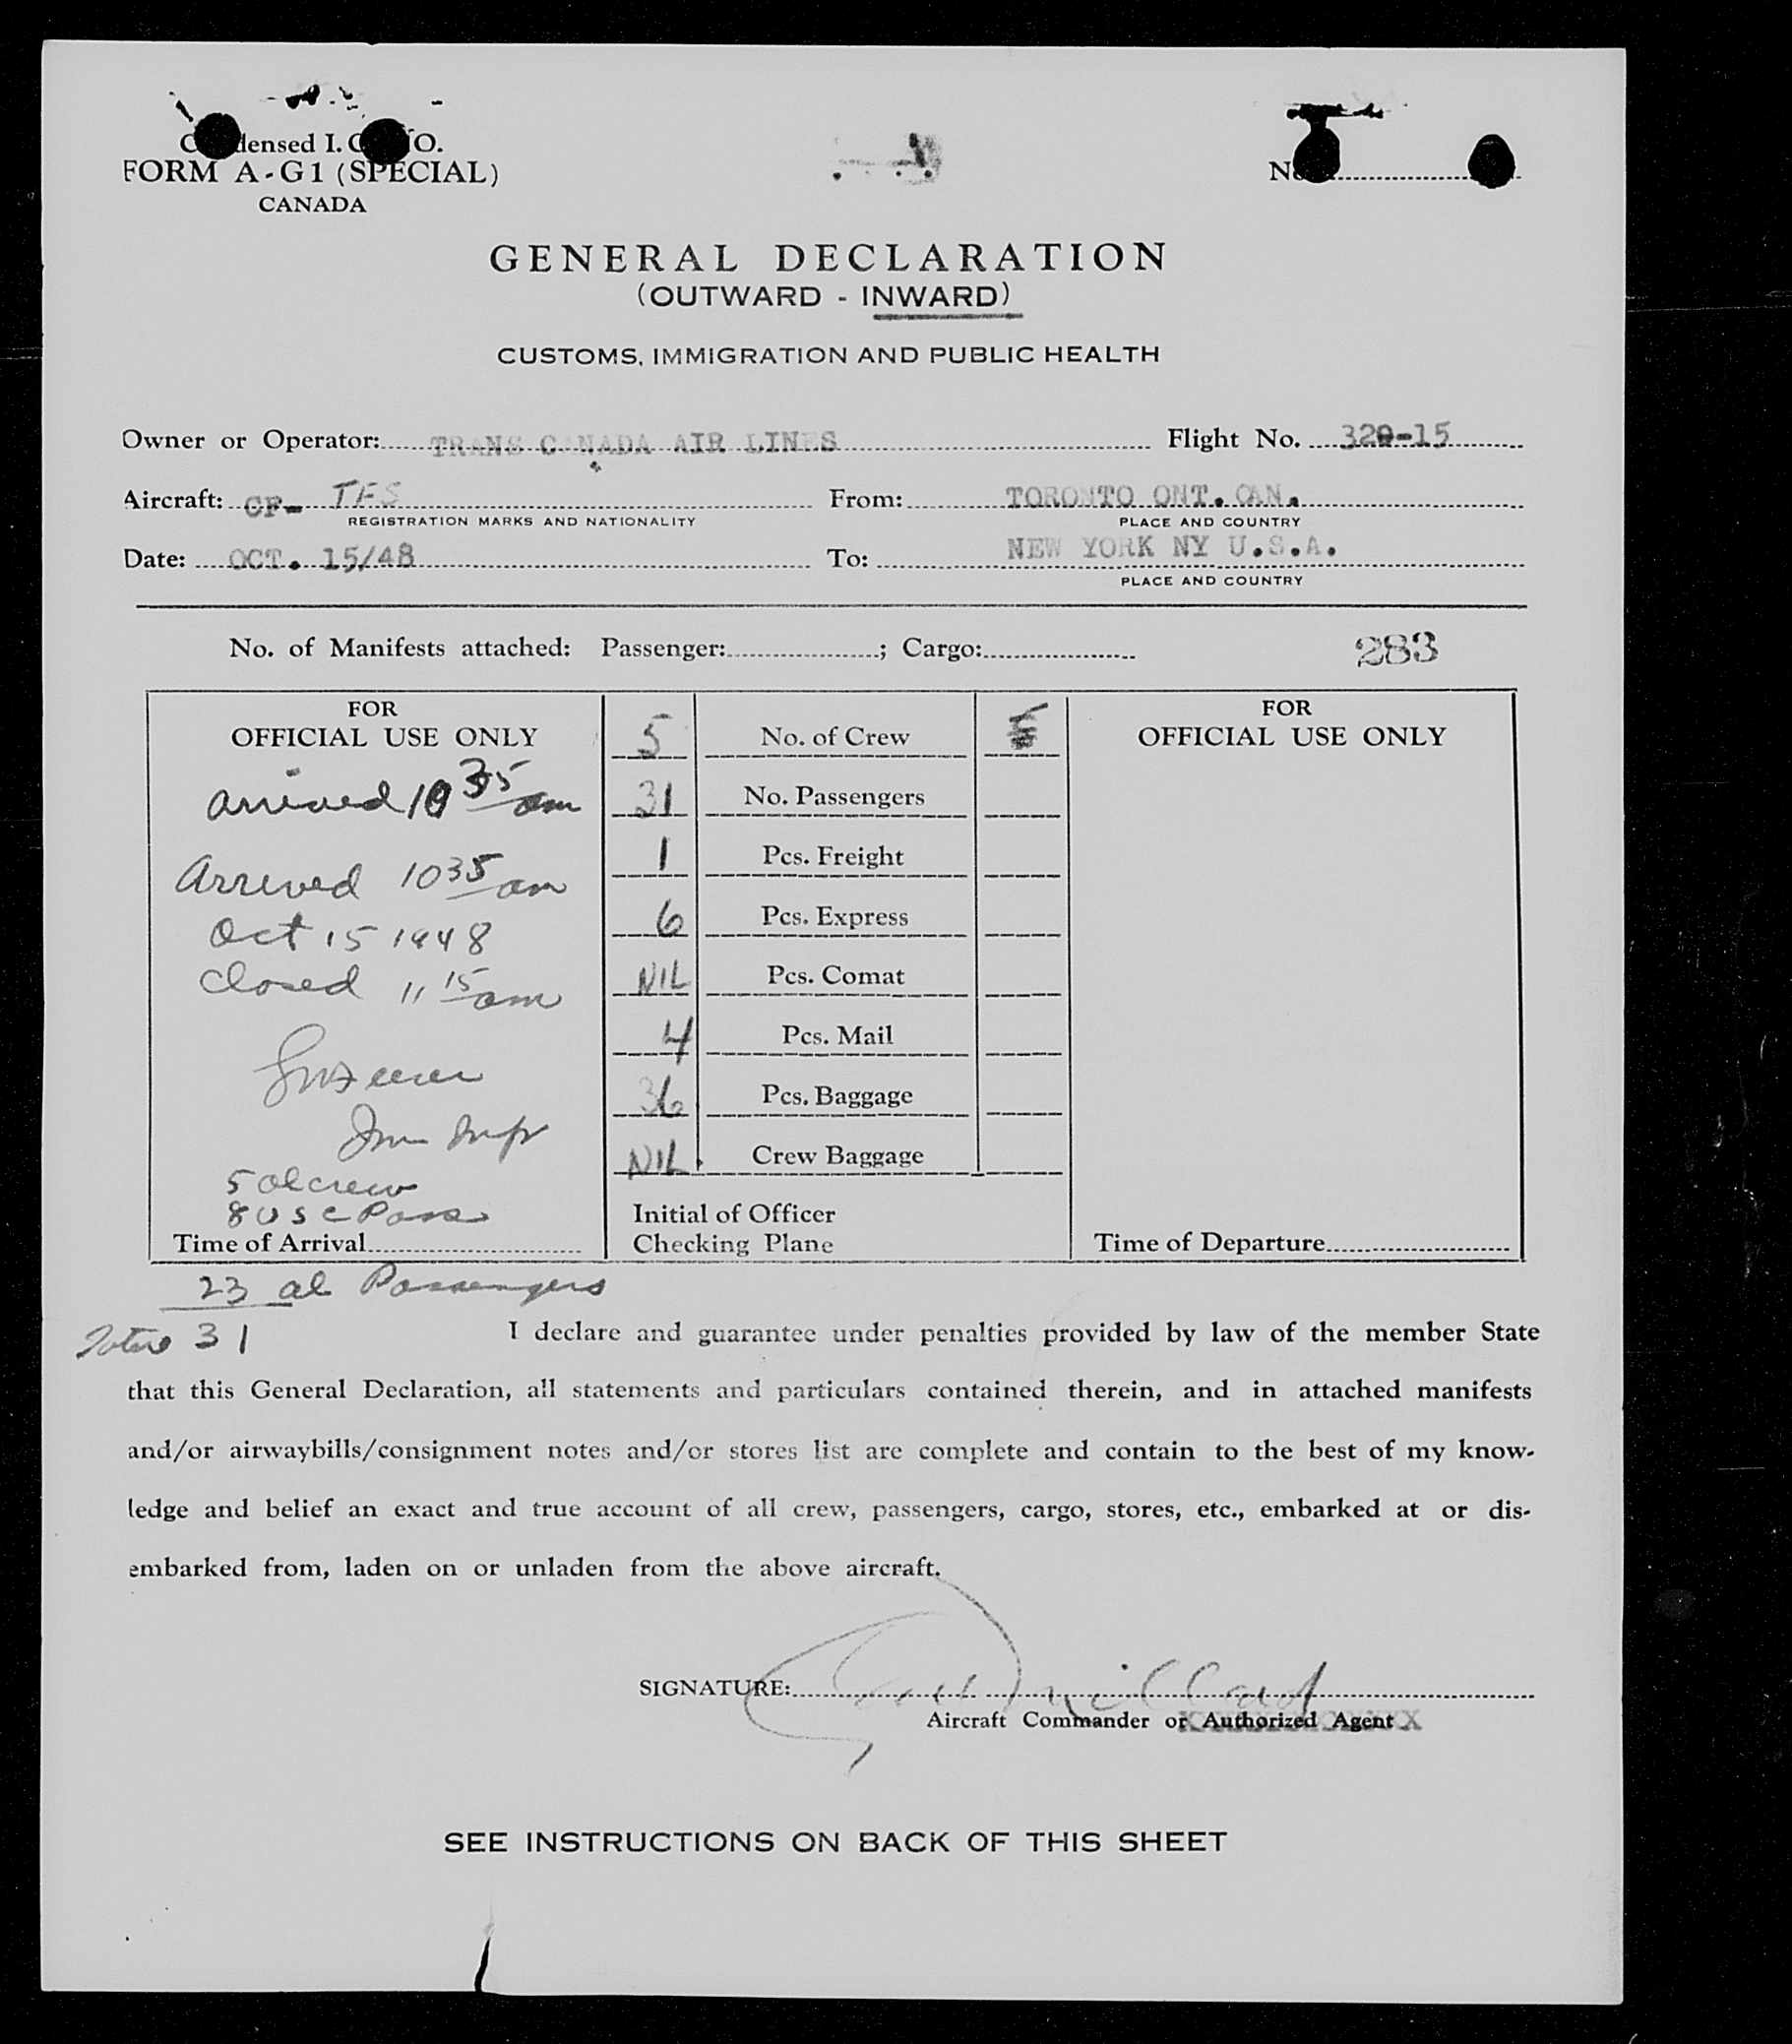 Condensed I.C.A.O.
FORM A-G1 (SPECIAL)
CANADA
No.
GENERAL DECLARATION
(OUTWARD - INWARD)
CUSTOMS, IMMIGRATION AND PUBLIC HEALTH
Owner or Operator: TRANS CANADA AIR LINES Flight No. 320-15
Aircraft: CF- TFS From: TORONTO ONT. CAN.
REGISTRATION MARKS AND NATIONALITY PLACE AND COUNTRY
Date: OCT. 15/48 To: NEW YORK NY U.S.A.
PLACE AND COUNTRY
No. of Manifests attached: Passenger: ; Cargo: 283
FOR
OFFICIAL USE ONLY
arrived 10 35 am
Arrived 10 35 am
Oct 15 1948
Closed 11 15 am
Imm Insp
5 al crew
8 USC Pass
Time of Arrival
23 al Passengers
Total 31
5 No. of Crew
31 No. Passengers
1 Pcs. Freight
6 Pcs. Express
NIL Pcs. Comat
4 Pcs. Mail
36 Pcs. Baggage
NIL. Crew Baggage
Initial of Officer
Checking Plane
FOR
OFFICIAL USE ONLY
Time of Departure
I declare and guarantee under penalties provided by law of the member State
that this General Declaration, all statements and particulars contained therein, and in attached manifests
and/or airwaybills/consignment notes and/or stores list are complete and contain to the best of my know-
ledge and belief an exact and true account of all crew, passengers, cargo, stores, etc., embarked at or dis-
embarked from, laden on or unladen from the above aircraft.
SIGNATURE:
Aircraft Commander or Authorized Agent
SEE INSTRUCTIONS ON BACK OF THIS SHEET